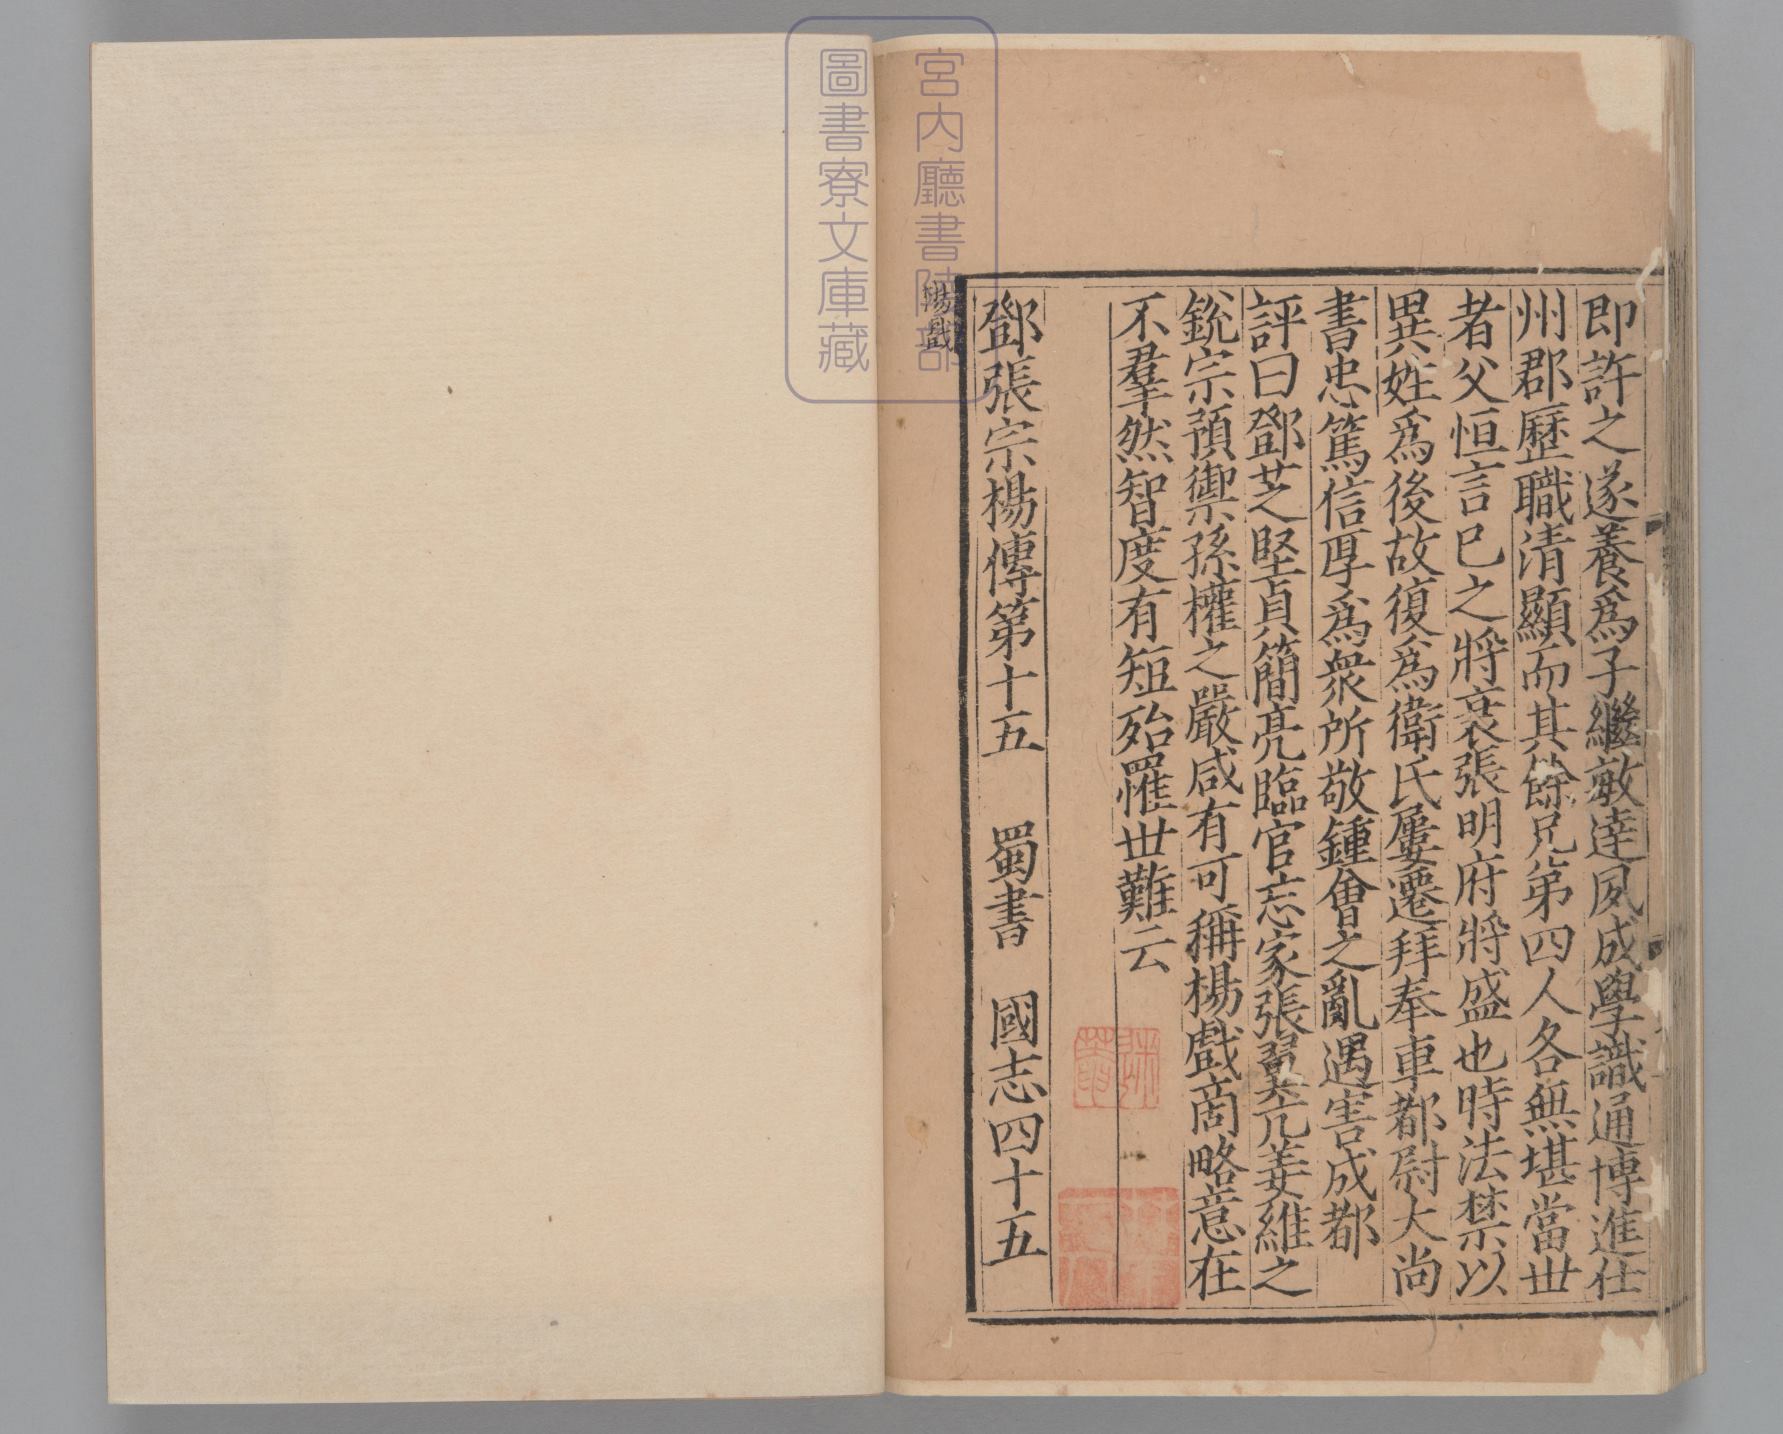 即許之遂養爲子繼敏達夙成學識通博進仕
州郡歷職清顯而其餘兄弟四人各無堪當世
者父恒言巳之將衰張明府將盛也時法禁以
異姓爲後故復爲衛氏屢遷拜奉車都尉大尚
書忠篤信厚爲衆所敬鍾會之亂遇害成都
評曰鄧芝堅貞簡亮臨官忘家張翼亢姜維之
銳宗預禦孫權之嚴咸有可稱楊戲商略意在
不羣然智度有短殆罹世難云
鄧張宗楊傳第十五　蜀書　國志四十五
楊戲
宮内廳書陵部
圖書寮文庫藏